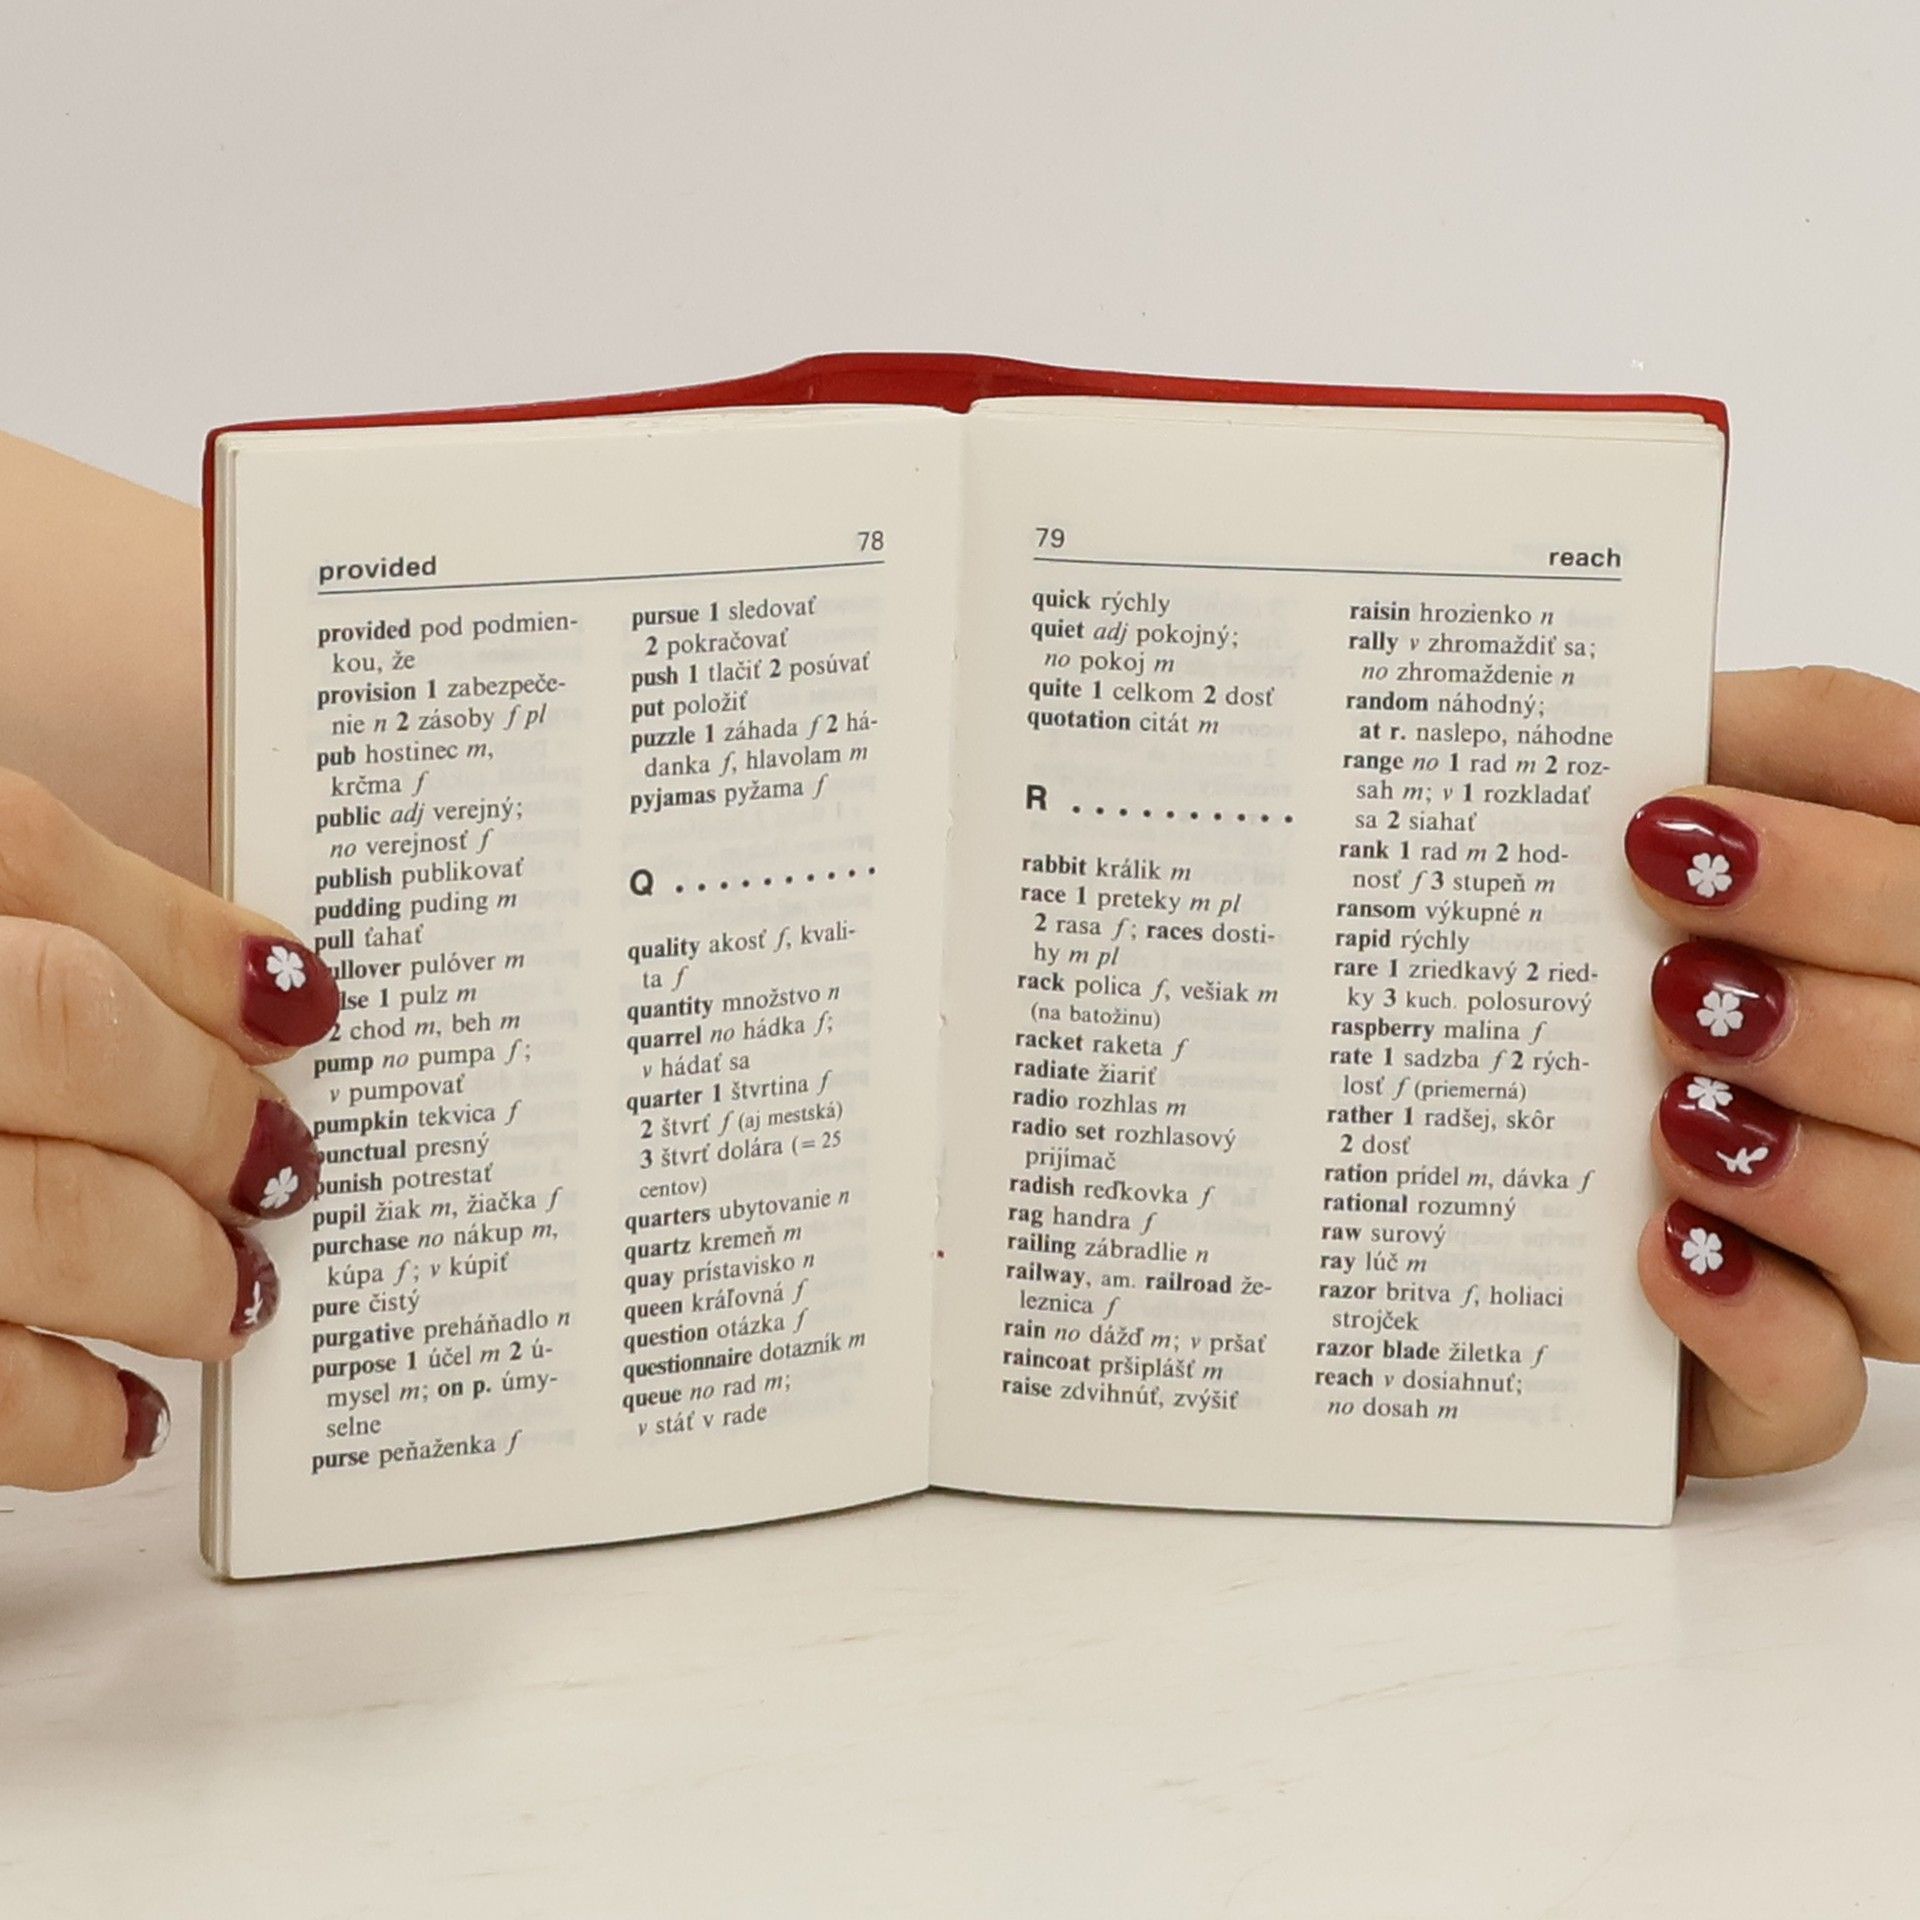 provided 78
provided pod podmien-
kou, že
provision 1 zabezpeče-
nie n 2 zásoby f pl
pub hostinec m,
krčma f
public adj verejný;
no verejnosť f
publish publikovať
pudding puding m
pull ťahať
ullover pulóver m
lse 1 pulz m
2 chod m, beh m
pump no pumpa f;
v pumpovať
pumpkin tekvica f
punctual presný
punish potrestať
pupil žiak m, žiačka f
purchase no nákup m,
kúpa f; v kúpiť
pure čistý
purgative preháňadlo n
purpose 1 účel m 2 ú-
mysel m; on p. úmy-
selne
purse peňaženka f
pursue 1 sledovať
2 pokračovať
push 1 tlačiť 2 posúvať
put položiť
puzzle 1 záhada f 2 há-
danka f, hlavolam m
pyjamas pyžama f
Q ..........
quality akosť f, kvali-
ta f
quantity množstvo n
quarrel no hádka f;
v hádať sa
quarter 1 štvrtina f
2 štvrť f (aj mestská)
3 štvrť dolára (= 25
centov)
quarters ubytovanie n
quartz kremeň m
quay prístavisko n
queen kráľovná f
question otázka f
questionnaire dotazník m
queue no rad m;
v stáť v rade
79 reach
quick rýchly
quiet adj pokojný;
no pokoj m
quite 1 celkom 2 dosť
quotation citát m
R ..........
rabbit králik m
race 1 preteky m pl
2 rasa f; races dosti-
hy m pl
rack polica f, vešiak m
(na batožinu)
racket raketa f
radiate žiariť
radio rozhlas m
radio set rozhlasový
prijímač
radish reďkovka f
rag handra f
railing zábradlie n
railway, am. railroad že-
leznica f
rain no dážď m; v pršať
raincoat pršiplášť m
raise zdvihnúť, zvýšiť
raisin hrozienko n
rally v zhromaždiť sa;
no zhromaždenie n
random náhodný;
at r. naslepo, náhodne
range no 1 rad m 2 roz-
sah m; v 1 rozkladať
sa 2 siahať
rank 1 rad m 2 hod-
nosť f 3 stupeň m
ransom výkupné n
rapid rýchly
rare 1 zriedkavý 2 ried-
ky 3 kuch. polosurový
raspberry malina f
rate 1 sadzba f 2 rých-
losť f (priemerná)
rather 1 radšej, skôr
2 dosť
ration prídel m, dávka f
rational rozumný
raw surový
ray lúč m
razor britva f, holiaci
strojček
razor blade žiletka f
reach v dosiahnuť;
no dosah m